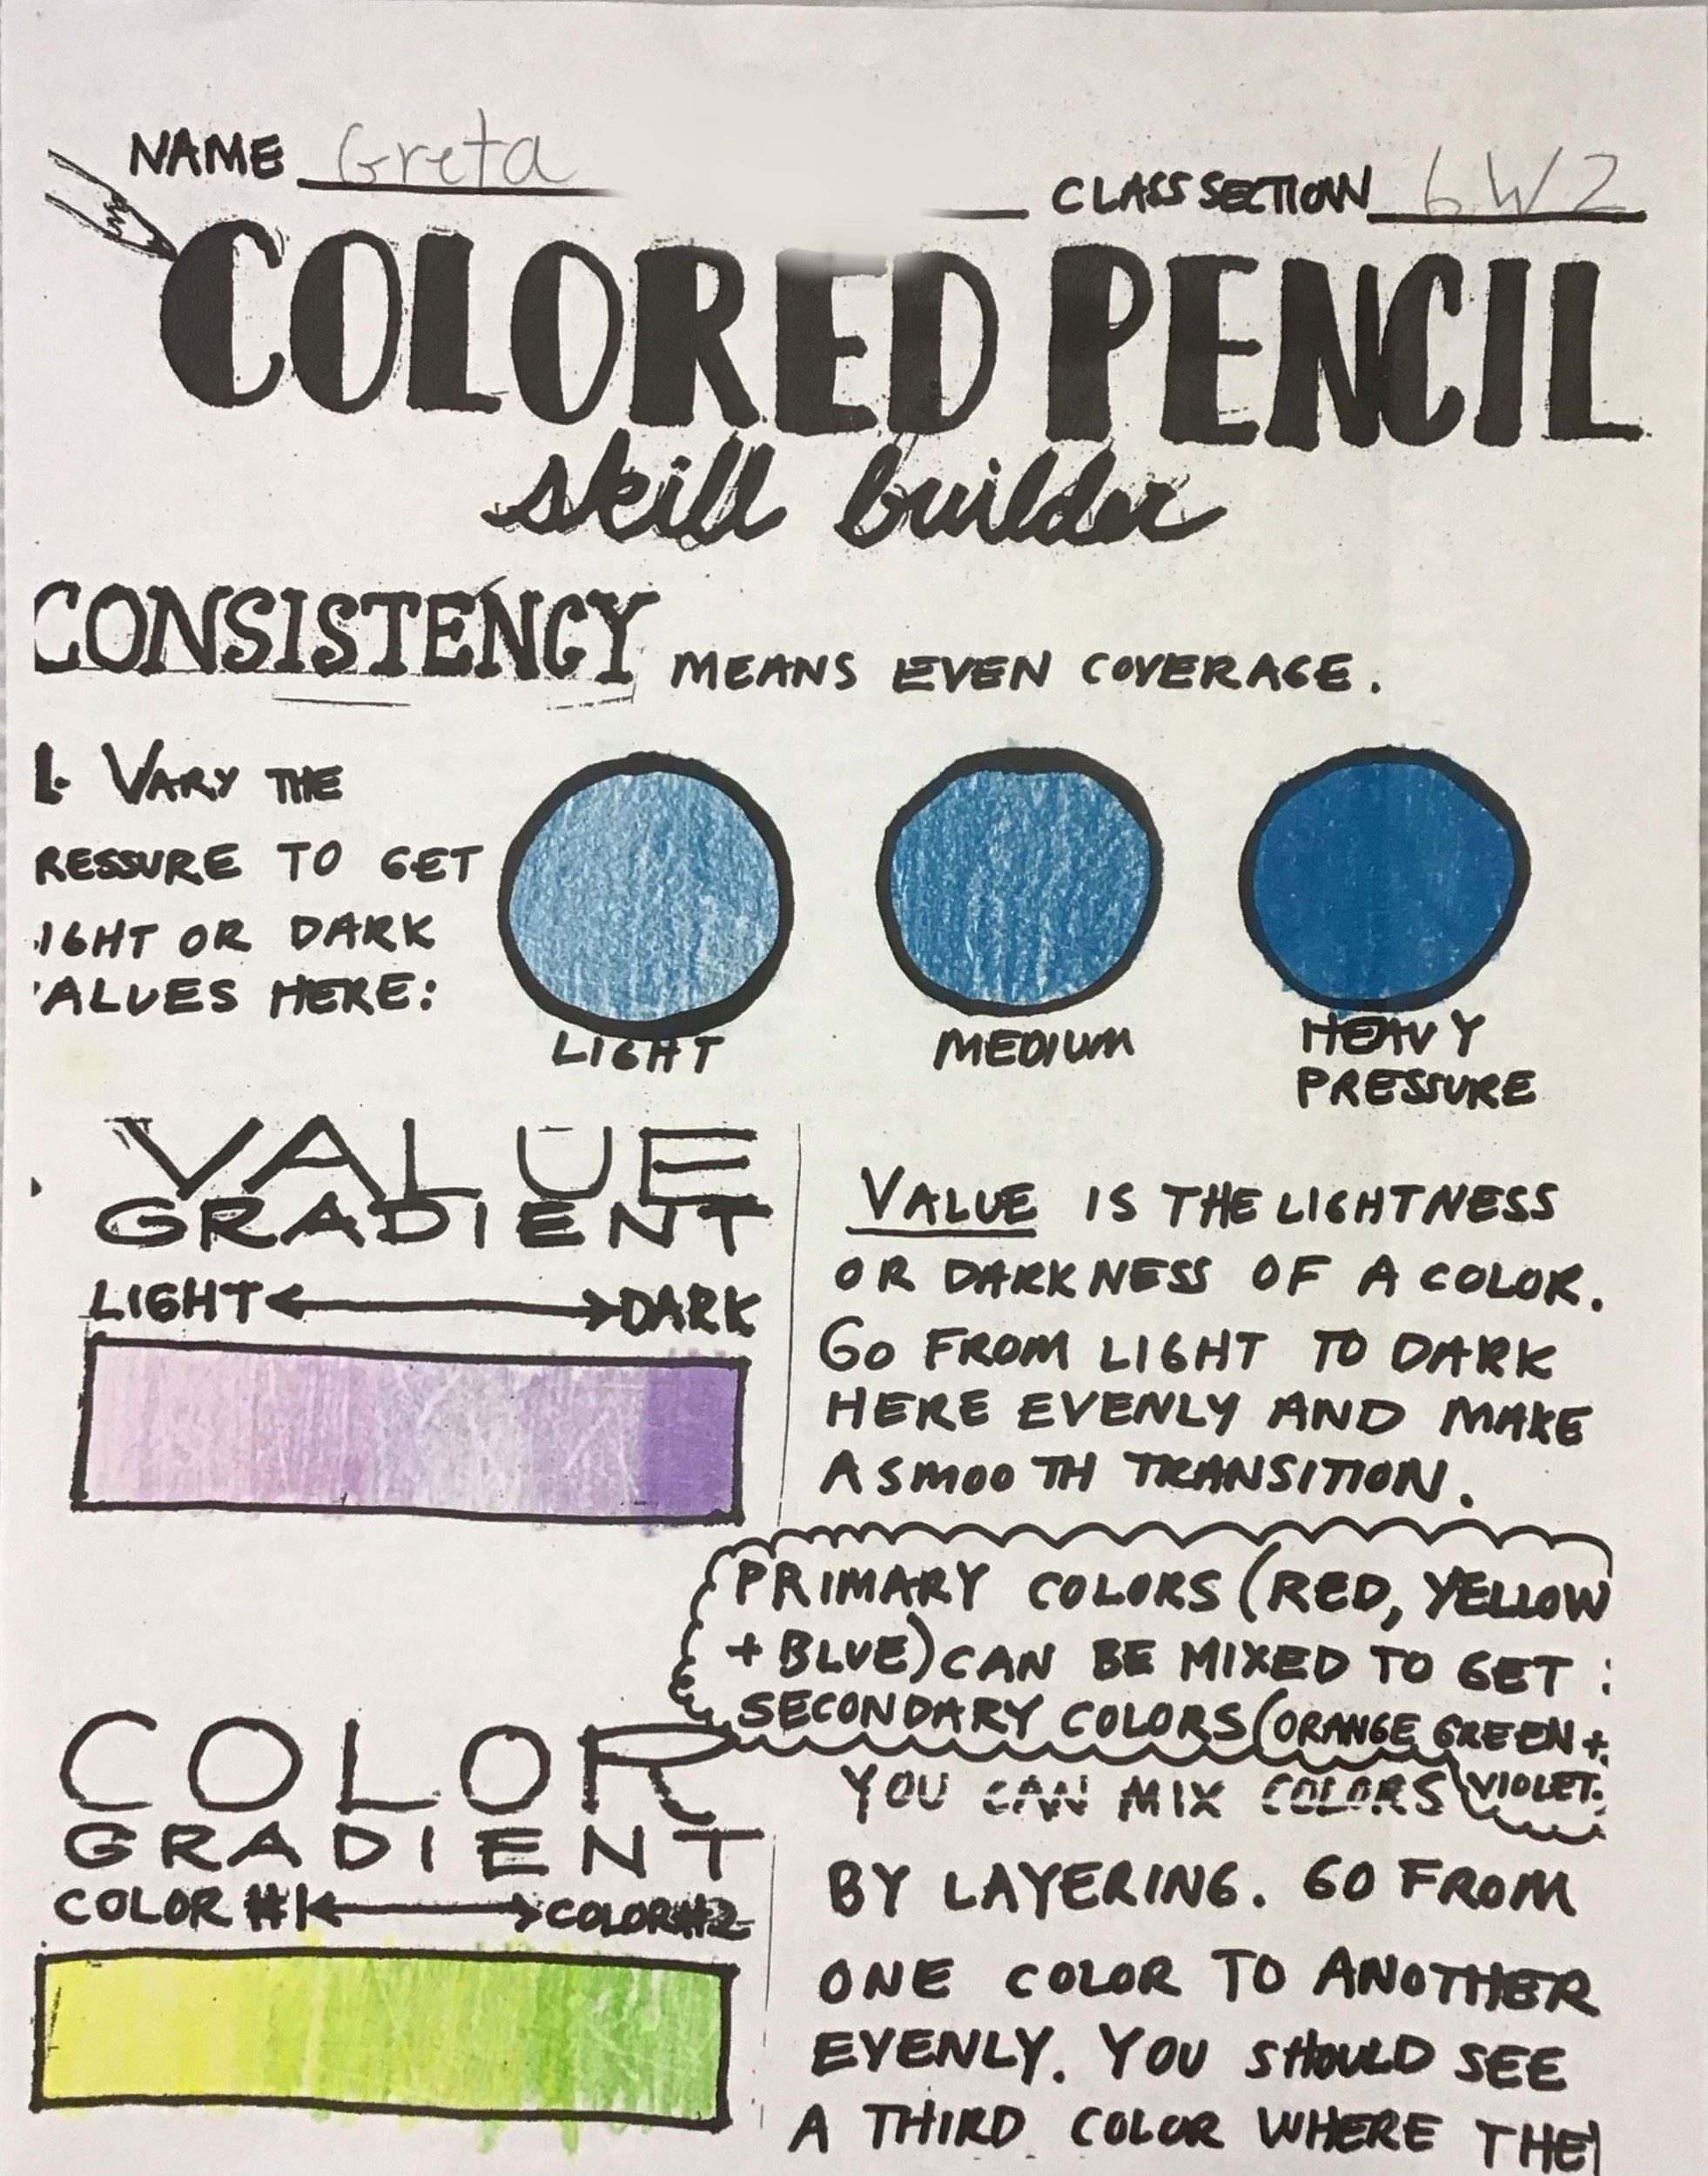 NAME Greta
CLASS SECTION 6W2
COLORED PENCIL
skill builder
CONSISTENCY MEANS EVEN COVERAGE.
1. VARY THE
RESSURE TO GET
IGHT OR DARK
ALUES HERE:
LIGHT
MEDIUM
HEAVY
PRESSURE
VALUE
GRADIENT
LIGHT DARK
VALUE IS THE LIGHTNESS
OR DARKNESS OF A COLOR.
GO FROM LIGHT TO DARK
HERE EVENLY AND MAKE
A SMOOTH TRANSITION.
PRIMARY COLORS (RED, YELLOW
+ BLUE) CAN BE MIXED TO GET :
SECONDARY COLORS (ORANGE GREEN +
VIOLET.
COLOR
GRADIENT
COLOR #1 COLOR #2
YOU CAN MIX COLORS
BY LAYERING. GO FROM
ONE COLOR TO ANOTHER
EVENLY. YOU SHOULD SEE
A THIRD COLOR WHERE THE